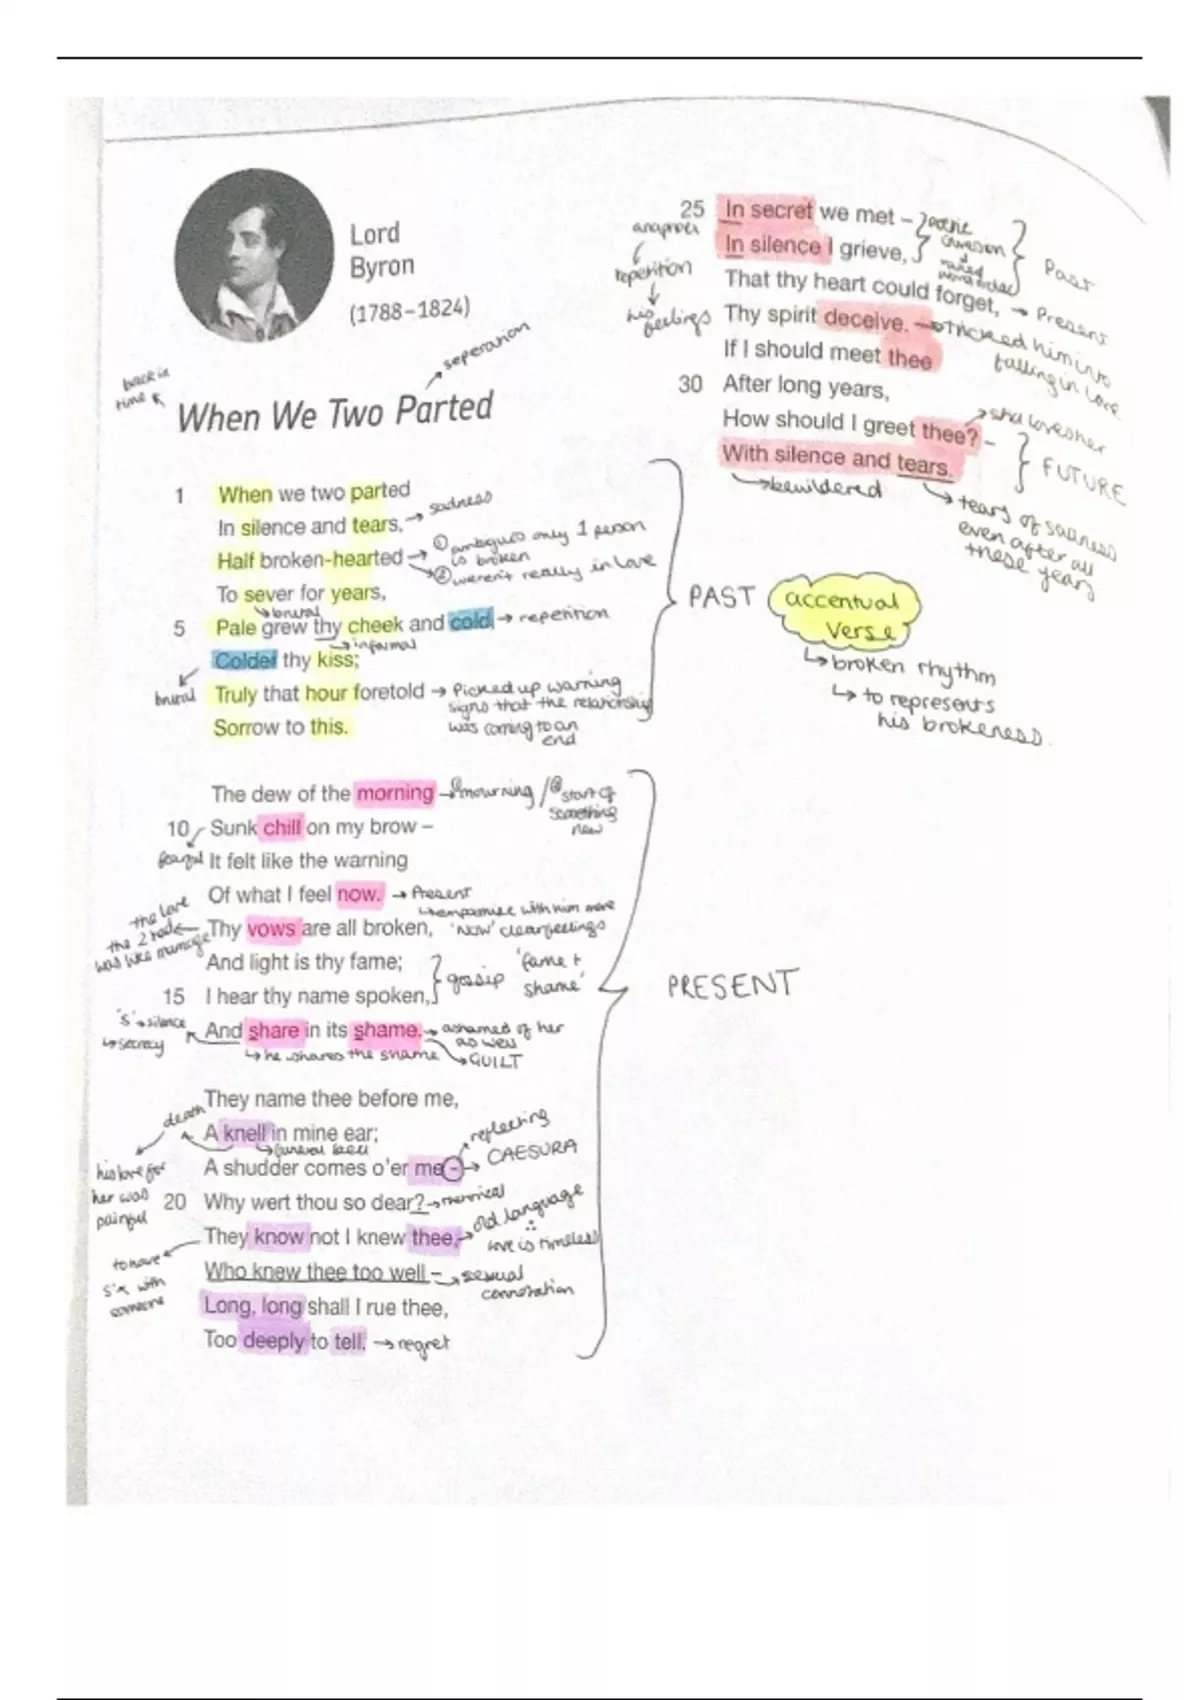 Lord
Byron
(1788–1824)
seperation
back in
time
When We Two Parted
1 When we two parted
In silence and tears, → sadness
Half broken-hearted → ① ambiguos only 1 person
is broken
② weren't really in love
To sever for years,
↳ brutal
5 Pale grew thy cheek and cold, → repetition
→ informal
Colder thy kiss;
brutal
Truly that hour foretold → Picked up warning
signs that the relationship
was coming to an
end
Sorrow to this.
PAST
The dew of the morning → ① mourning / ② start of
something
new
10 Sunk chill on my brow –
It felt like the warning
Of what I feel now. → Present
↳ empathise with him more
'Now' clear feelings
the love
the 2 had
was like marriage
Thy vows are all broken,
And light is thy fame; } gossip 'fame +
shame'
15 I hear thy name spoken,
's' → silence
↳ secrecy
And share in its shame. → ashamed of her
as well
↳ he shares the shame ↳ GUILT
PRESENT
They name thee before me,
death
A knell in mine ear;
↳ funeral bell
his love for
her was
painful
A shudder comes o'er me – → CAESURA
reflecting
20 Why wert thou so dear? →
They know not I knew thee, → old language
∴
love is timeless
to have
s*x with
someone
Who knew thee too well – → sexual
connotation
Long, long shall I rue thee,
Too deeply to tell. → regret
25 In secret we met –
In silence I grieve,
Past
repetition
↓
his
feelings
That thy heart could forget, → Present
Thy spirit deceive. → tricked him into
falling in love
If I should meet thee
30 After long years,
How should I greet thee? –
With silence and tears.
FUTURE
↳ bewildered
→ tears of sadness
even after all
these years
accentual
verse
↳ broken rhythm
↳ to represents
his brokeness.